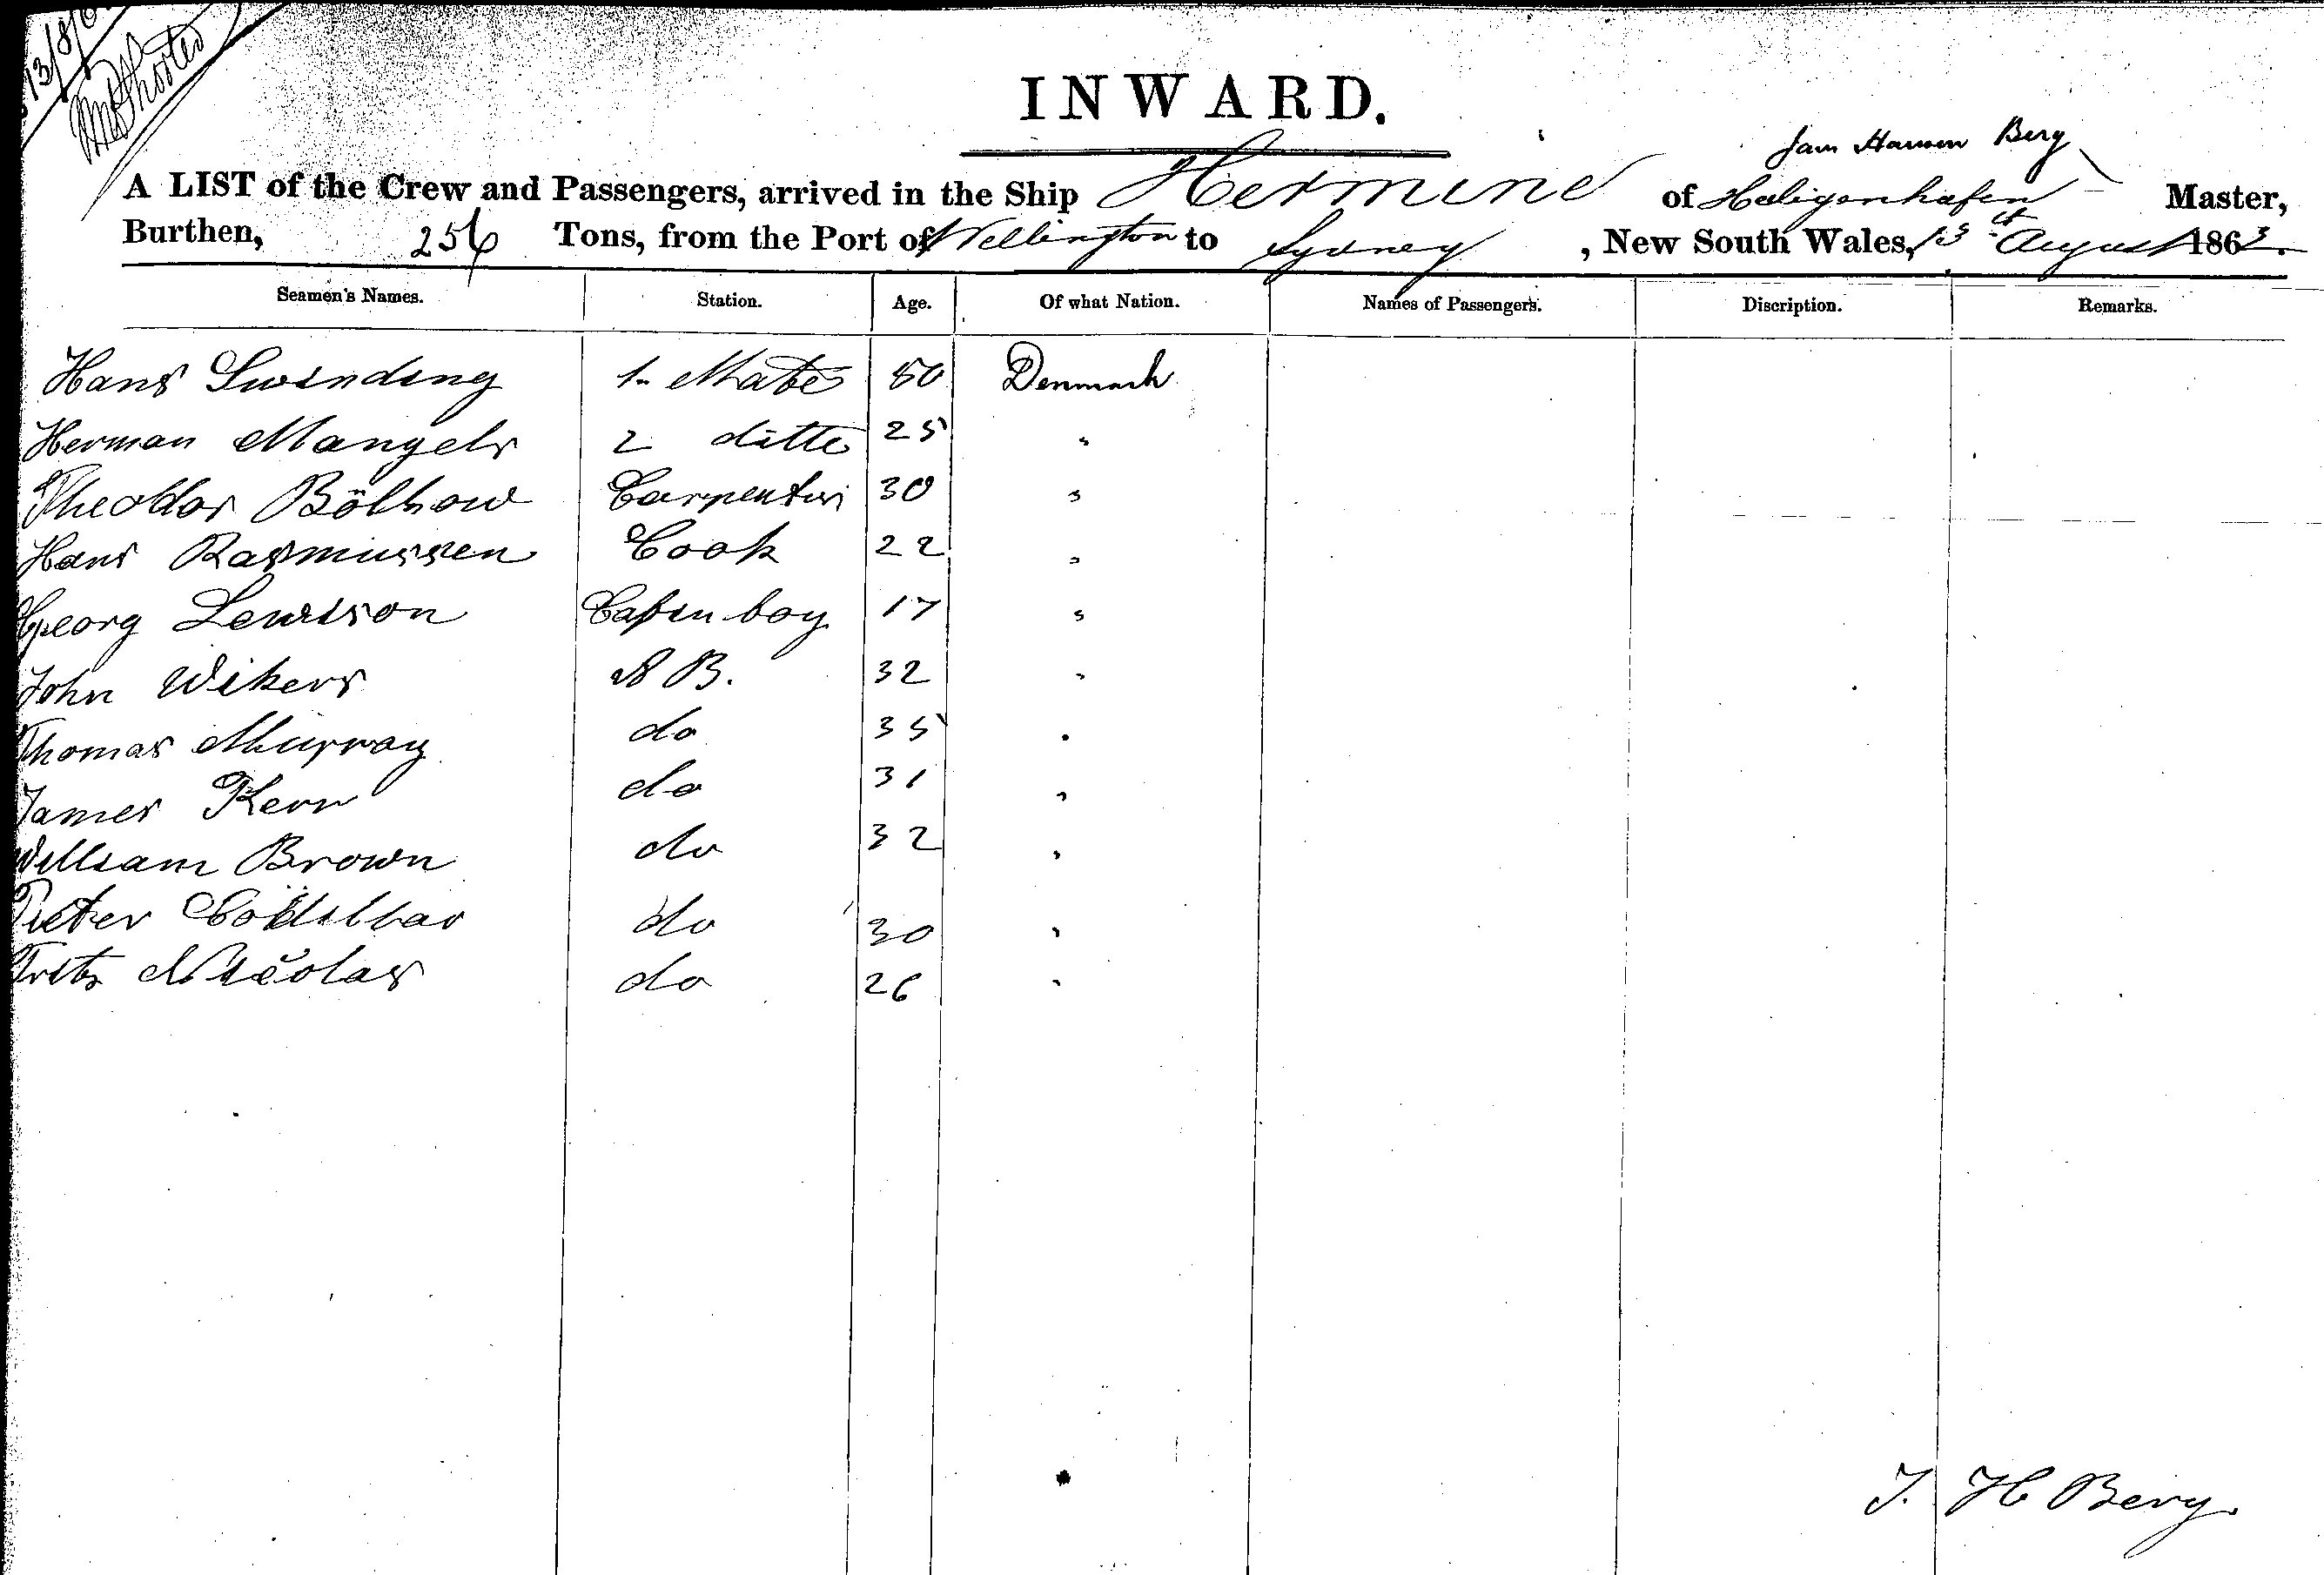 13/8/6
INWARD.
Jam Hansen Berg
A LIST of the Crew and Passengers, arrived in the Ship Hermine of Heiligenhafen Master,
Burthen, 256 Tons, from the Port of Wellington to Sydney, New South Wales, 13th August 1863.
Seamen's Names. Station. Age. Of what Nation. Names of Passengers. Discription. Remarks.
Hans Swinding 1. Mate 50 Denmark
Herman Mangels 2 ditto 25 "
Theodor Bölhow Carpenter 30 "
Hans Rasmussen Cook 22 "
Georg Lewison Cabin boy 17 "
John Wikers A B. 32 "
Thomas Murray do 35 "
James Kerr do 31 "
William Brown do 32 "
Pieter do 30 "
Fritz Nicolas do 26 "
J. H Berg